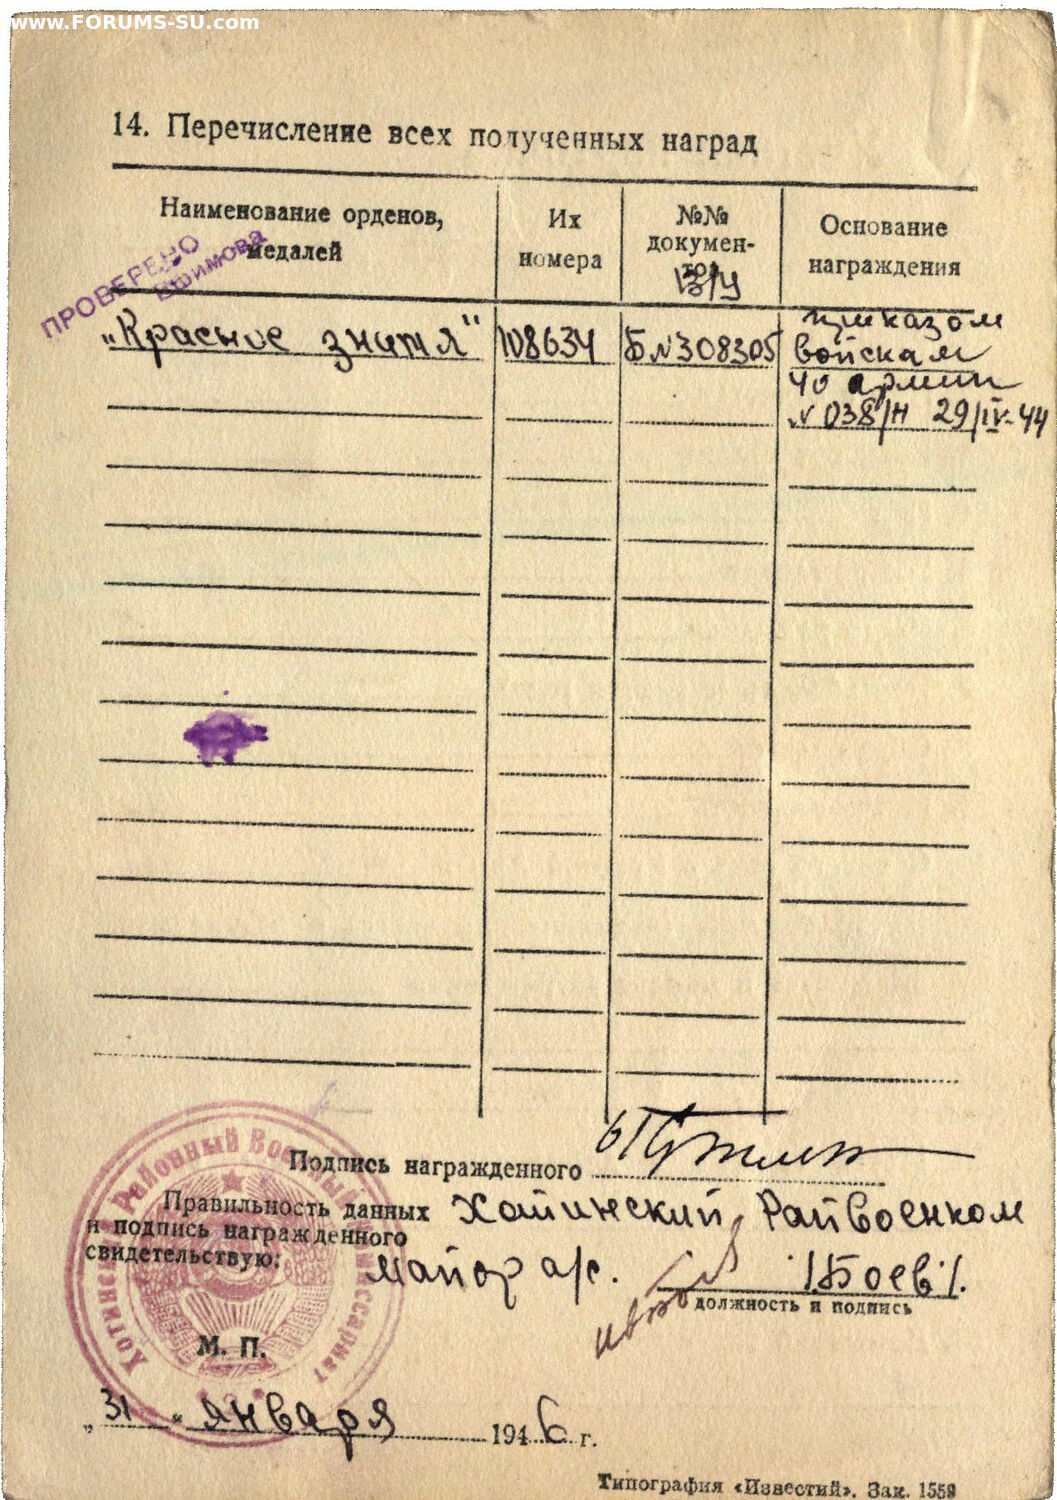 www.FORUMS-SU.com
14. Перечисление всех полученных наград
Наименование орденов, медалей
Их номера
№№ докумен-
В/У
Основание награждения
ПРОВЕРЕНО
"Красное знамя" 108634 Б№308305 приказом
войскам
40 армии
№ 038/н 29/IV-44
Подпись награжденного
Правильность данных Хотинский Райвоенком
и подпись награжденного
свидетельствую: майор а/с. /Боев/.
должность и подпись
Хотинский Районный Военный Комиссариат
М. П.
"31" января 1946 г.
Типография «Известий». Зак. 1559